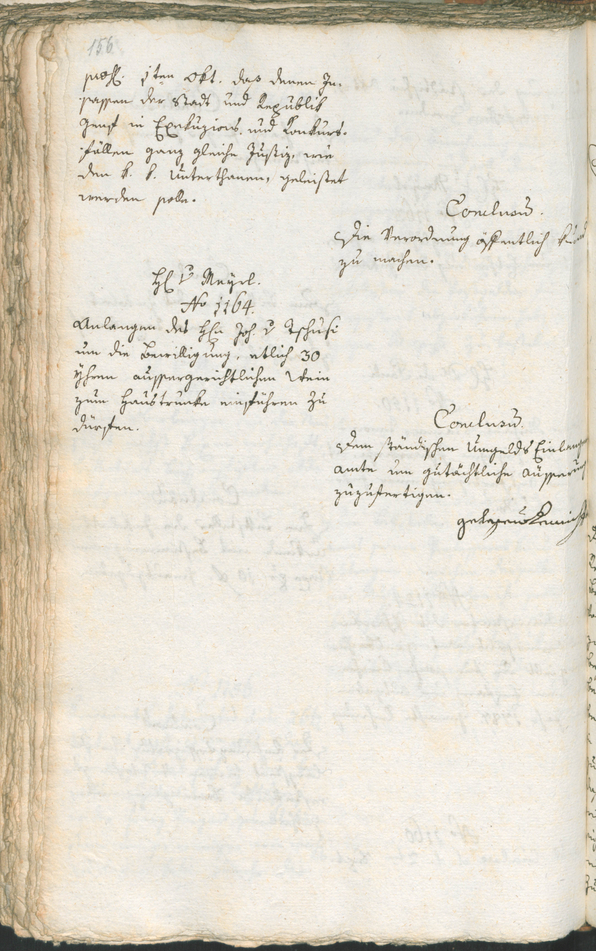 156
praes. 1ten Okt. das denen In,
sassen der Stadt und Republik
Genf in Exekuzions, und Konkurs,
fällen ganz gleiche Justiz, wie
den k. k. Unterthanen, geleistet
werden solle.
Conclusū.
Die Verordnung öffentlich kund
zu machen.
H. v Mayrl.
No 1164.
Anlangen des Hn Joh. v Tschusi
um die Bewilligung, etlich 30
Yhren aussergerichtlichen Wein
zum Haustrunke einführen zu
dürfen.
Conclusū.
Dem ständischen Umgelds Einlangs
amte um gutächtliche Äusserung
zuzufertigen.